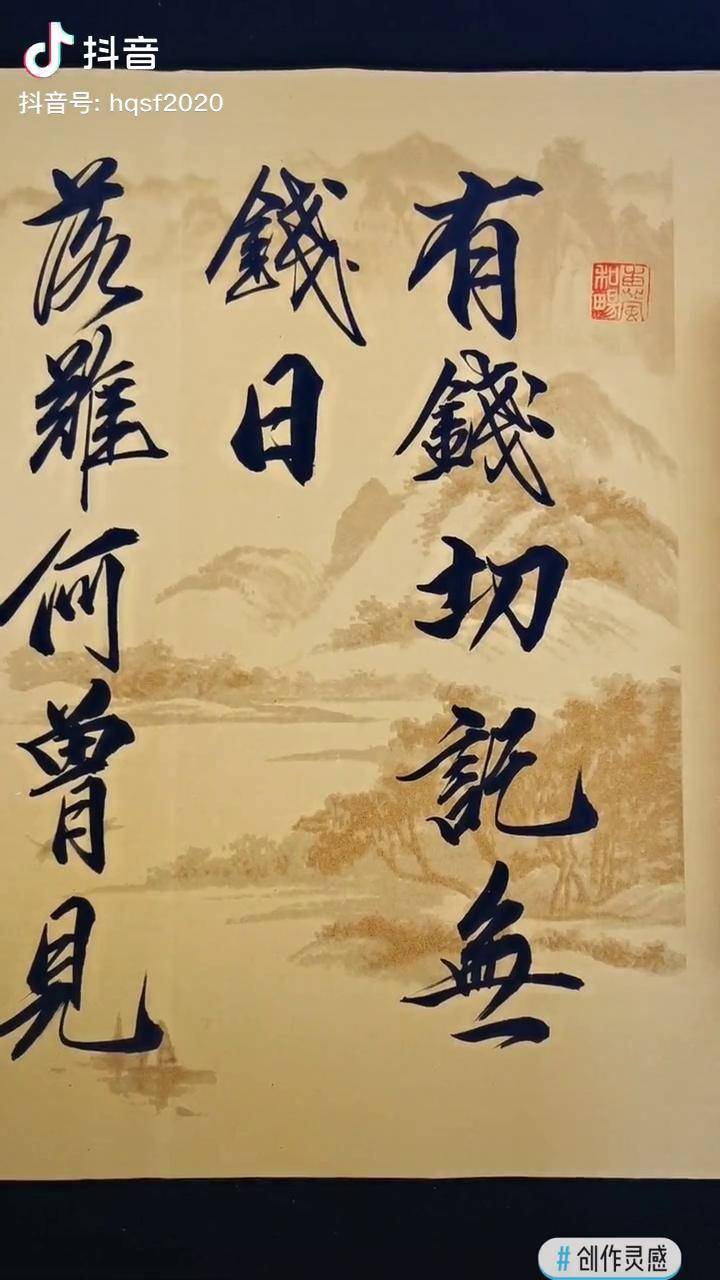 抖音
抖音号: hqsf2020
有錢切記無
錢日
落難何曾見
惠風
和暢
#创作灵感